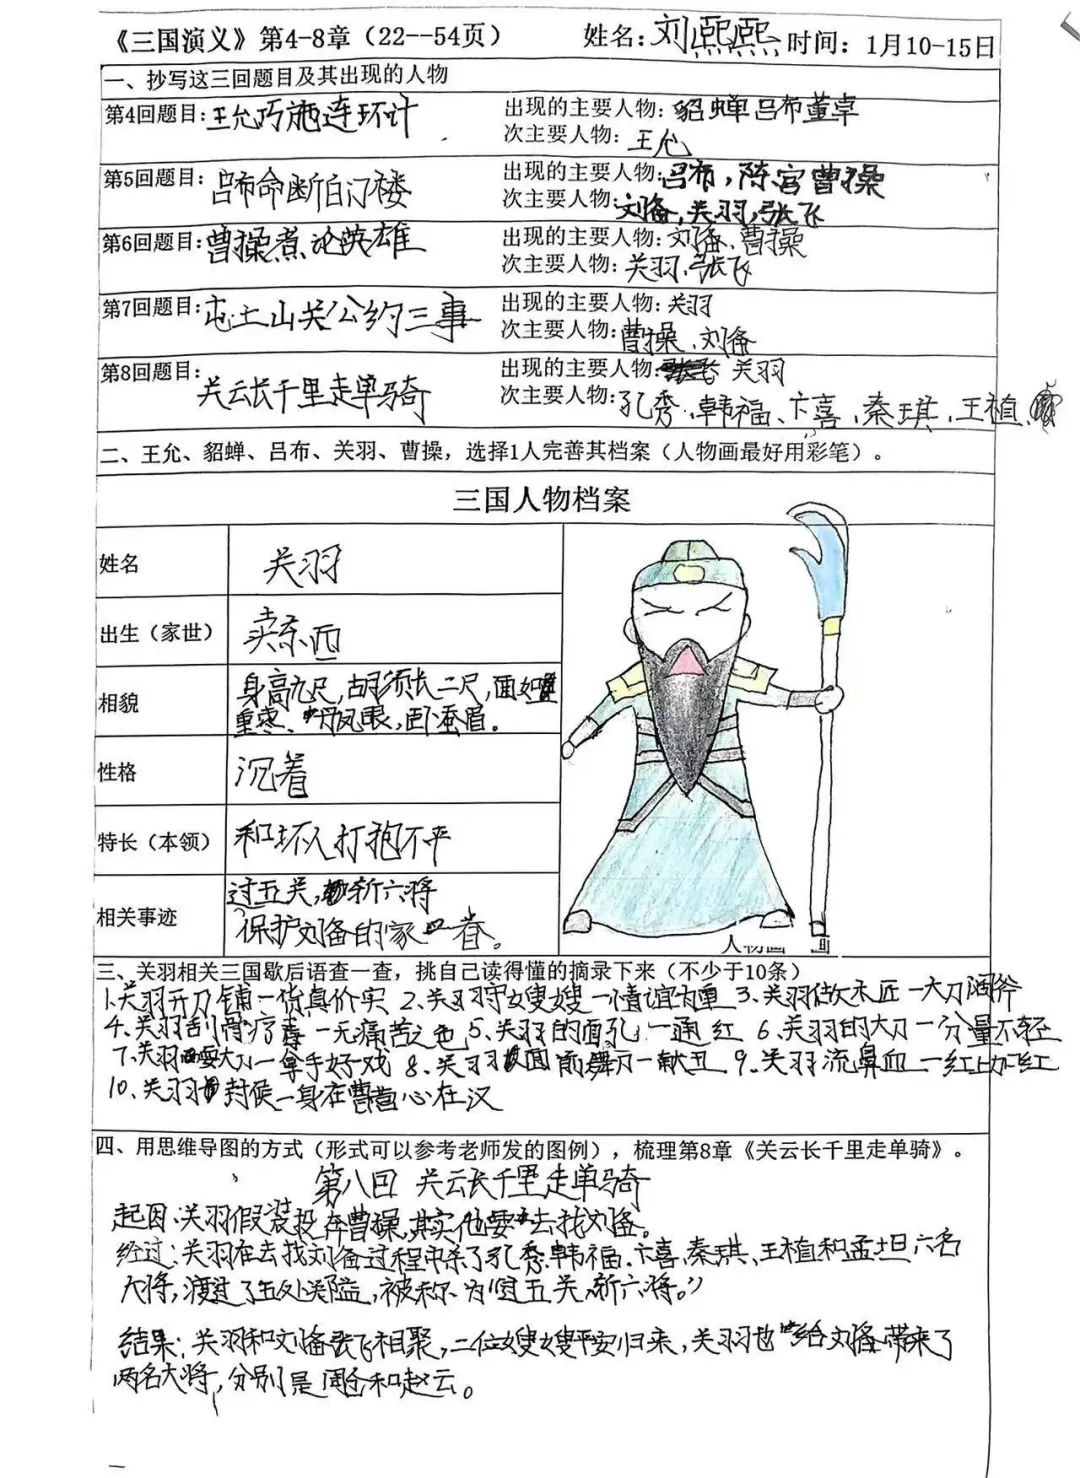 《三国演义》第4-8章（22--54页） 姓名：刘熙熙 时间：1月10-15日
一、抄写这三回题目及其出现的人物
第4回题目：王允巧施连环计 出现的主要人物：貂蝉吕布董卓
次主要人物：王允
第5回题目：吕布命断白门楼 出现的主要人物：吕布，陈宫曹操
次主要人物：刘备，关羽，张飞
第6回题目：曹操煮论英雄 出现的主要人物：刘备、曹操
次主要人物：关羽、张飞
第7回题目：屯土山关公约三事 出现的主要人物：关羽
次主要人物：曹操、刘备
第8回题目：关云长千里走单骑 出现的主要人物：关羽
次主要人物：孔秀、韩福、卞喜、秦琪、王植、
二、王允、貂蝉、吕布、关羽、曹操，选择1人完善其档案（人物画最好用彩笔）。
三国人物档案
姓名 关羽
出生（家世） 卖东西
相貌 身高九尺，胡须长二尺，面如
重枣、丹凤眼，卧蚕眉。
性格 沉着
特长（本领） 和坏人打抱不平
相关事迹 过五关，斩六将
保护刘备的家眷。
人物画 画
三、关羽相关三国歇后语查一查，挑自己读得懂的摘录下来（不少于10条）
1、关羽开刀铺一货真价实 2、关羽守嫂嫂一情谊为重 3、关羽做木匠一大刀阔斧
4、关羽刮骨疗毒一无痛苦之色 5、关羽的面孔一通红 6、关羽的大刀一分量不轻
7、关羽耍大刀一拿手好戏 8、关羽面前舞刀一献丑 9、关羽流鼻血一红上加红
10、关羽封侯一身在曹营心在汉
四、用思维导图的方式（形式可以参考老师发的图例），梳理第8章《关云长千里走单骑》。
第八回 关云长千里走单骑
起因：关羽假装投奔曹操，其实他要去找刘备。
经过：关羽在去找刘备过程中杀了孔秀、韩福、卞喜、秦琪、王植和孟坦六名
大将，渡过了五处关隘，被称为“过五关，斩六将。”
结果：关羽和刘备张飞相聚，二位嫂嫂平安归来，关羽也给刘备带来了
两名大将，分别是周仓和赵云。